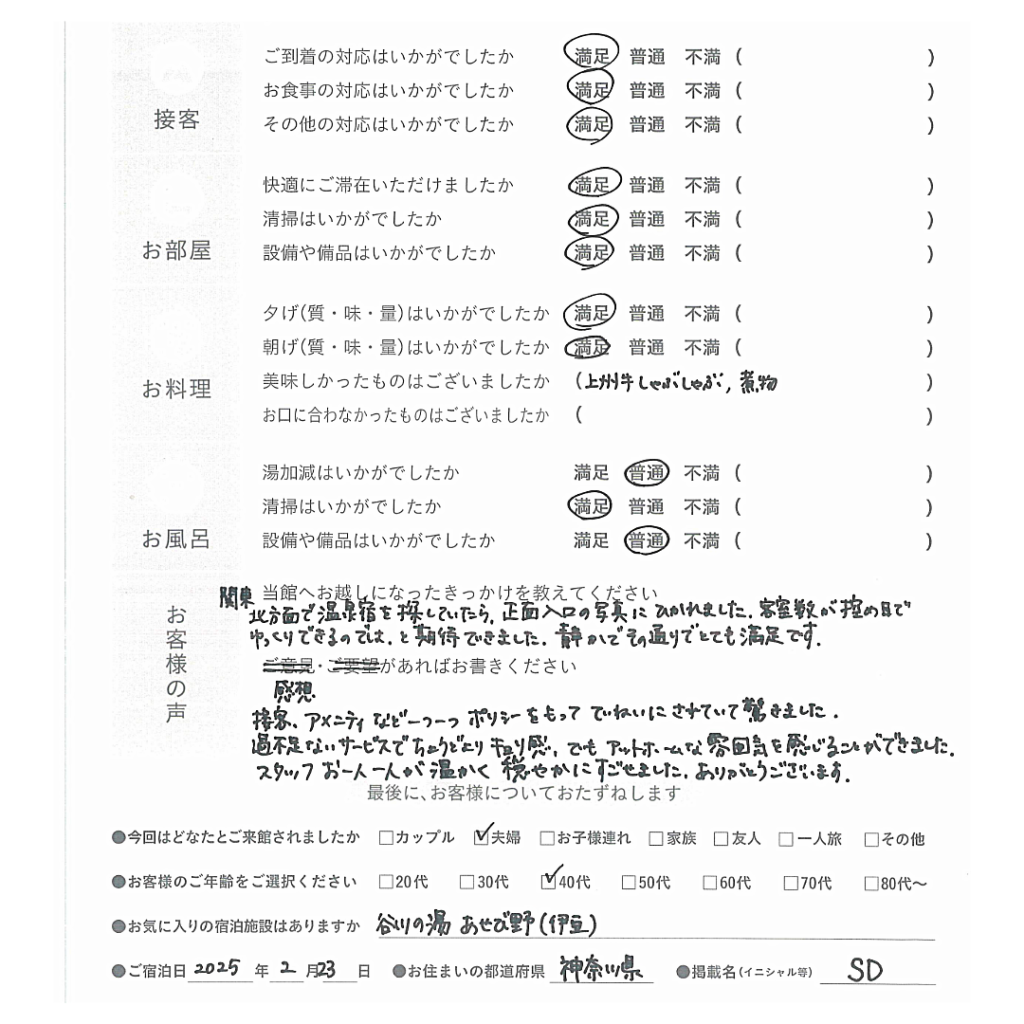 接客
ご到着の対応はいかがでしたか 満足 普通 不満 ( )
お食事の対応はいかがでしたか 満足 普通 不満 ( )
その他の対応はいかがでしたか 満足 普通 不満 ( )
お部屋
快適にご滞在いただけましたか 満足 普通 不満 ( )
清掃はいかがでしたか 満足 普通 不満 ( )
設備や備品はいかがでしたか 満足 普通 不満 ( )
お料理
夕げ(質・味・量)はいかがでしたか 満足 普通 不満 ( )
朝げ(質・味・量)はいかがでしたか 満足 普通 不満 ( )
美味しかったものはございましたか (上州牛しゃぶしゃぶ, 煮物 )
お口に合わなかったものはございましたか ( )
お風呂
湯加減はいかがでしたか 満足 普通 不満 ( )
清掃はいかがでしたか 満足 普通 不満 ( )
設備や備品はいかがでしたか 満足 普通 不満 ( )
お客様の声
当館へお越しになったきっかけを教えてください
関東
北方面で温泉宿を探していたら, 正面入口の写真にひかれました. 客室数が控め目で
ゆっくりできるのでは. と期待できました. 静かでその通りでとても満足です.
ご意見・ご要望があればお書きください
感想
接客、アメニティなど一つ一つ ポリシーをもって ていねいにされていて驚きました.
過不足ないサービスでちょうどよい キョリ感, でも アットホームな 雰囲気を感じることができました.
スタッフお一人一人が温かく 穏やかにすごせました. ありがとうございます.
最後に、お客様についておたずねします
●今回はどなたとご来館されましたか □カップル ☑夫婦 □お子様連れ □家族 □友人 □一人旅 □その他
●お客様のご年齢をご選択ください □20代 □30代 ☑40代 □50代 □60代 □70代 □80代〜
●お気に入りの宿泊施設はありますか 谷川の湯 あせび野(伊豆)
●ご宿泊日 2025 年 2 月 23 日 ●お住まいの都道府県 神奈川県 ●掲載名(イニシャル等) SD